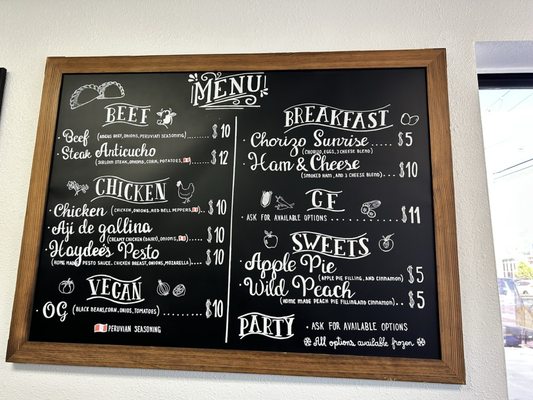 MENU
BEEF
Beef (ANGUS BEEF, ONIONS, PERUVIAN SEASONING)...... $10
Steak Anticucho ...... $12
(SIRLOIN STEAK, ONIONS, CORN, POTATOES,
CHICKEN
Chicken (CHICKEN, ONIONS, RED BELL PEPPERS, ... $10
Aji de gallina ...... $10
(CREAMY CHICKEN (DAIRY), ONIONS,
Haydee's Pesto ...... $10
(HOME MADE PESTO SAUCE, CHICKEN BREAST, ONIONS, MOZZARELLA)
VEGAN
OG (BLACK BEANS, CORN, ONIOS, TOMATOES) $10
PERUVIAN SEASONING
BREAKFAST
Chorizo Sunrise..... $5
(CHORIZO, EGGS, 3 CHEESE BLEND)
Ham & Cheese $10
(SMOKED HAM, AND 3 CHEESE BLEND)....
GF
ASK FOR AVAILABLE OPTIONS .......... $11
SWEETS
Apple Pie $5
(APPLE PIE FILLING, AND CINNAMON)
Wild Peach $5
(HOME MADE PEACH PIE FILLING AND CINNAMON)..
PARTY
· ASK FOR AVAILABLE OPTIONS
All options available frozen